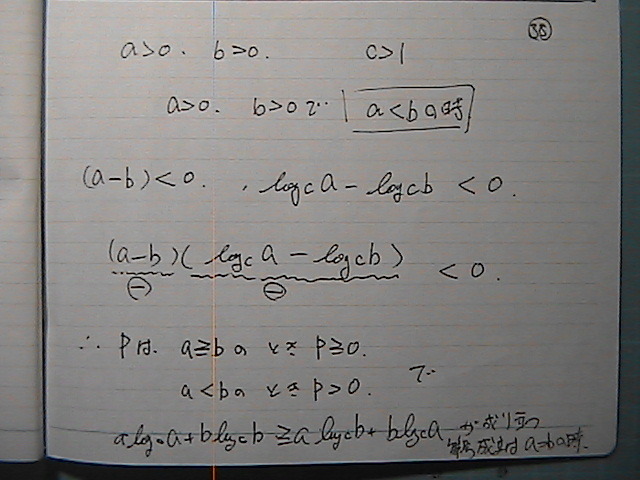 ㉟
a>0. b>0. c>1
a>0. b>0で a<bの時
(a-b)<0. , log_c a - log_c b < 0.
(a-b)(log_c a - log_c b) < 0.
⊖ ⊖
∴ Pは. a≧bのとき P≧0.
a<bのとき P>0. で
a log_c a + b log_c b ≧ a log_c b + b log_c a が成り立つ
等号成立は a=bの時.